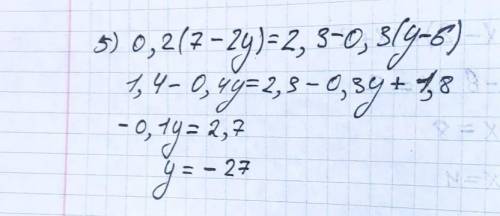 5) 0,2(7-2y)=2,3-0,3(y-6)
1,4-0,4y=2,3-0,3y+1,8
-0,1y=2,7
y=-27